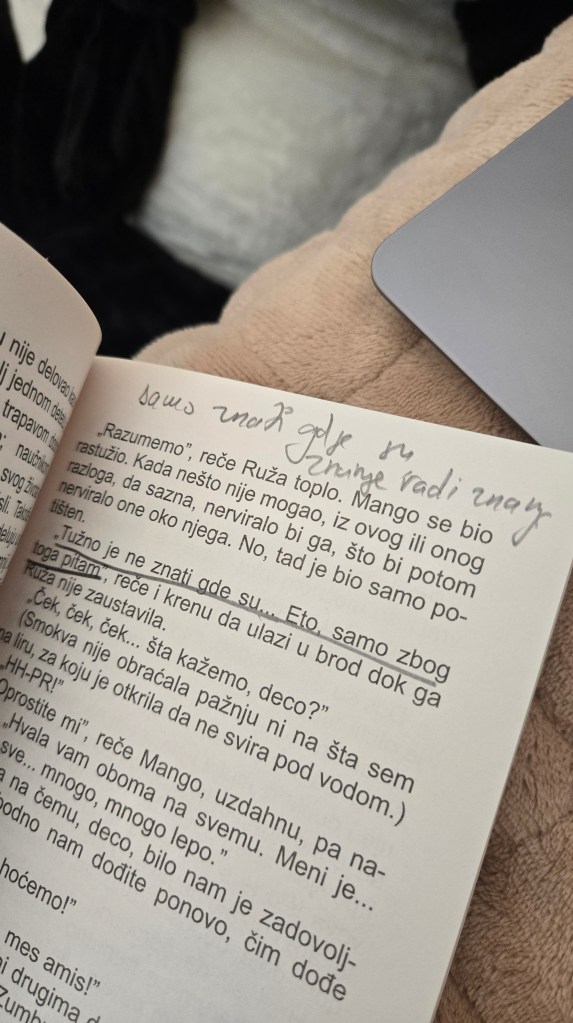 u nije delovao
lj jednom
trapavom
naučnik
svog
samo znati gdje su
znanje radi
„Razumemo”, reče Ruža toplo. Mango se bio
rastužio. Kada nešto nije mogao, iz ovog ili onog
razloga, da sazna, nerviralo bi ga, što bi potom
nerviralo one oko njega. No, tad je bio samo po-
tišten.
„Tužno je ne znati gde su... Eto, samo zbog
toga pitam”, reče i krenu da ulazi u brod dok ga
Ruža nije zaustavila.
„Ček, ček, ček... šta kažemo, deco?”
(Smokva nije obraćala pažnju ni na šta sem
na liru, za koju je otkrila da ne svira pod vodom.)
„HH-PR!”
Oprostite mi”, reče Mango, uzdahnu, pa na-
„Hvala vam oboma na svemu. Meni je...
sve... mnogo, mnogo lepo.”
a na čemu, deco, bilo nam je zadovolj-
bodno nam dođite ponovo, čim dođe
hoćemo!”
mes amis!”
drugima